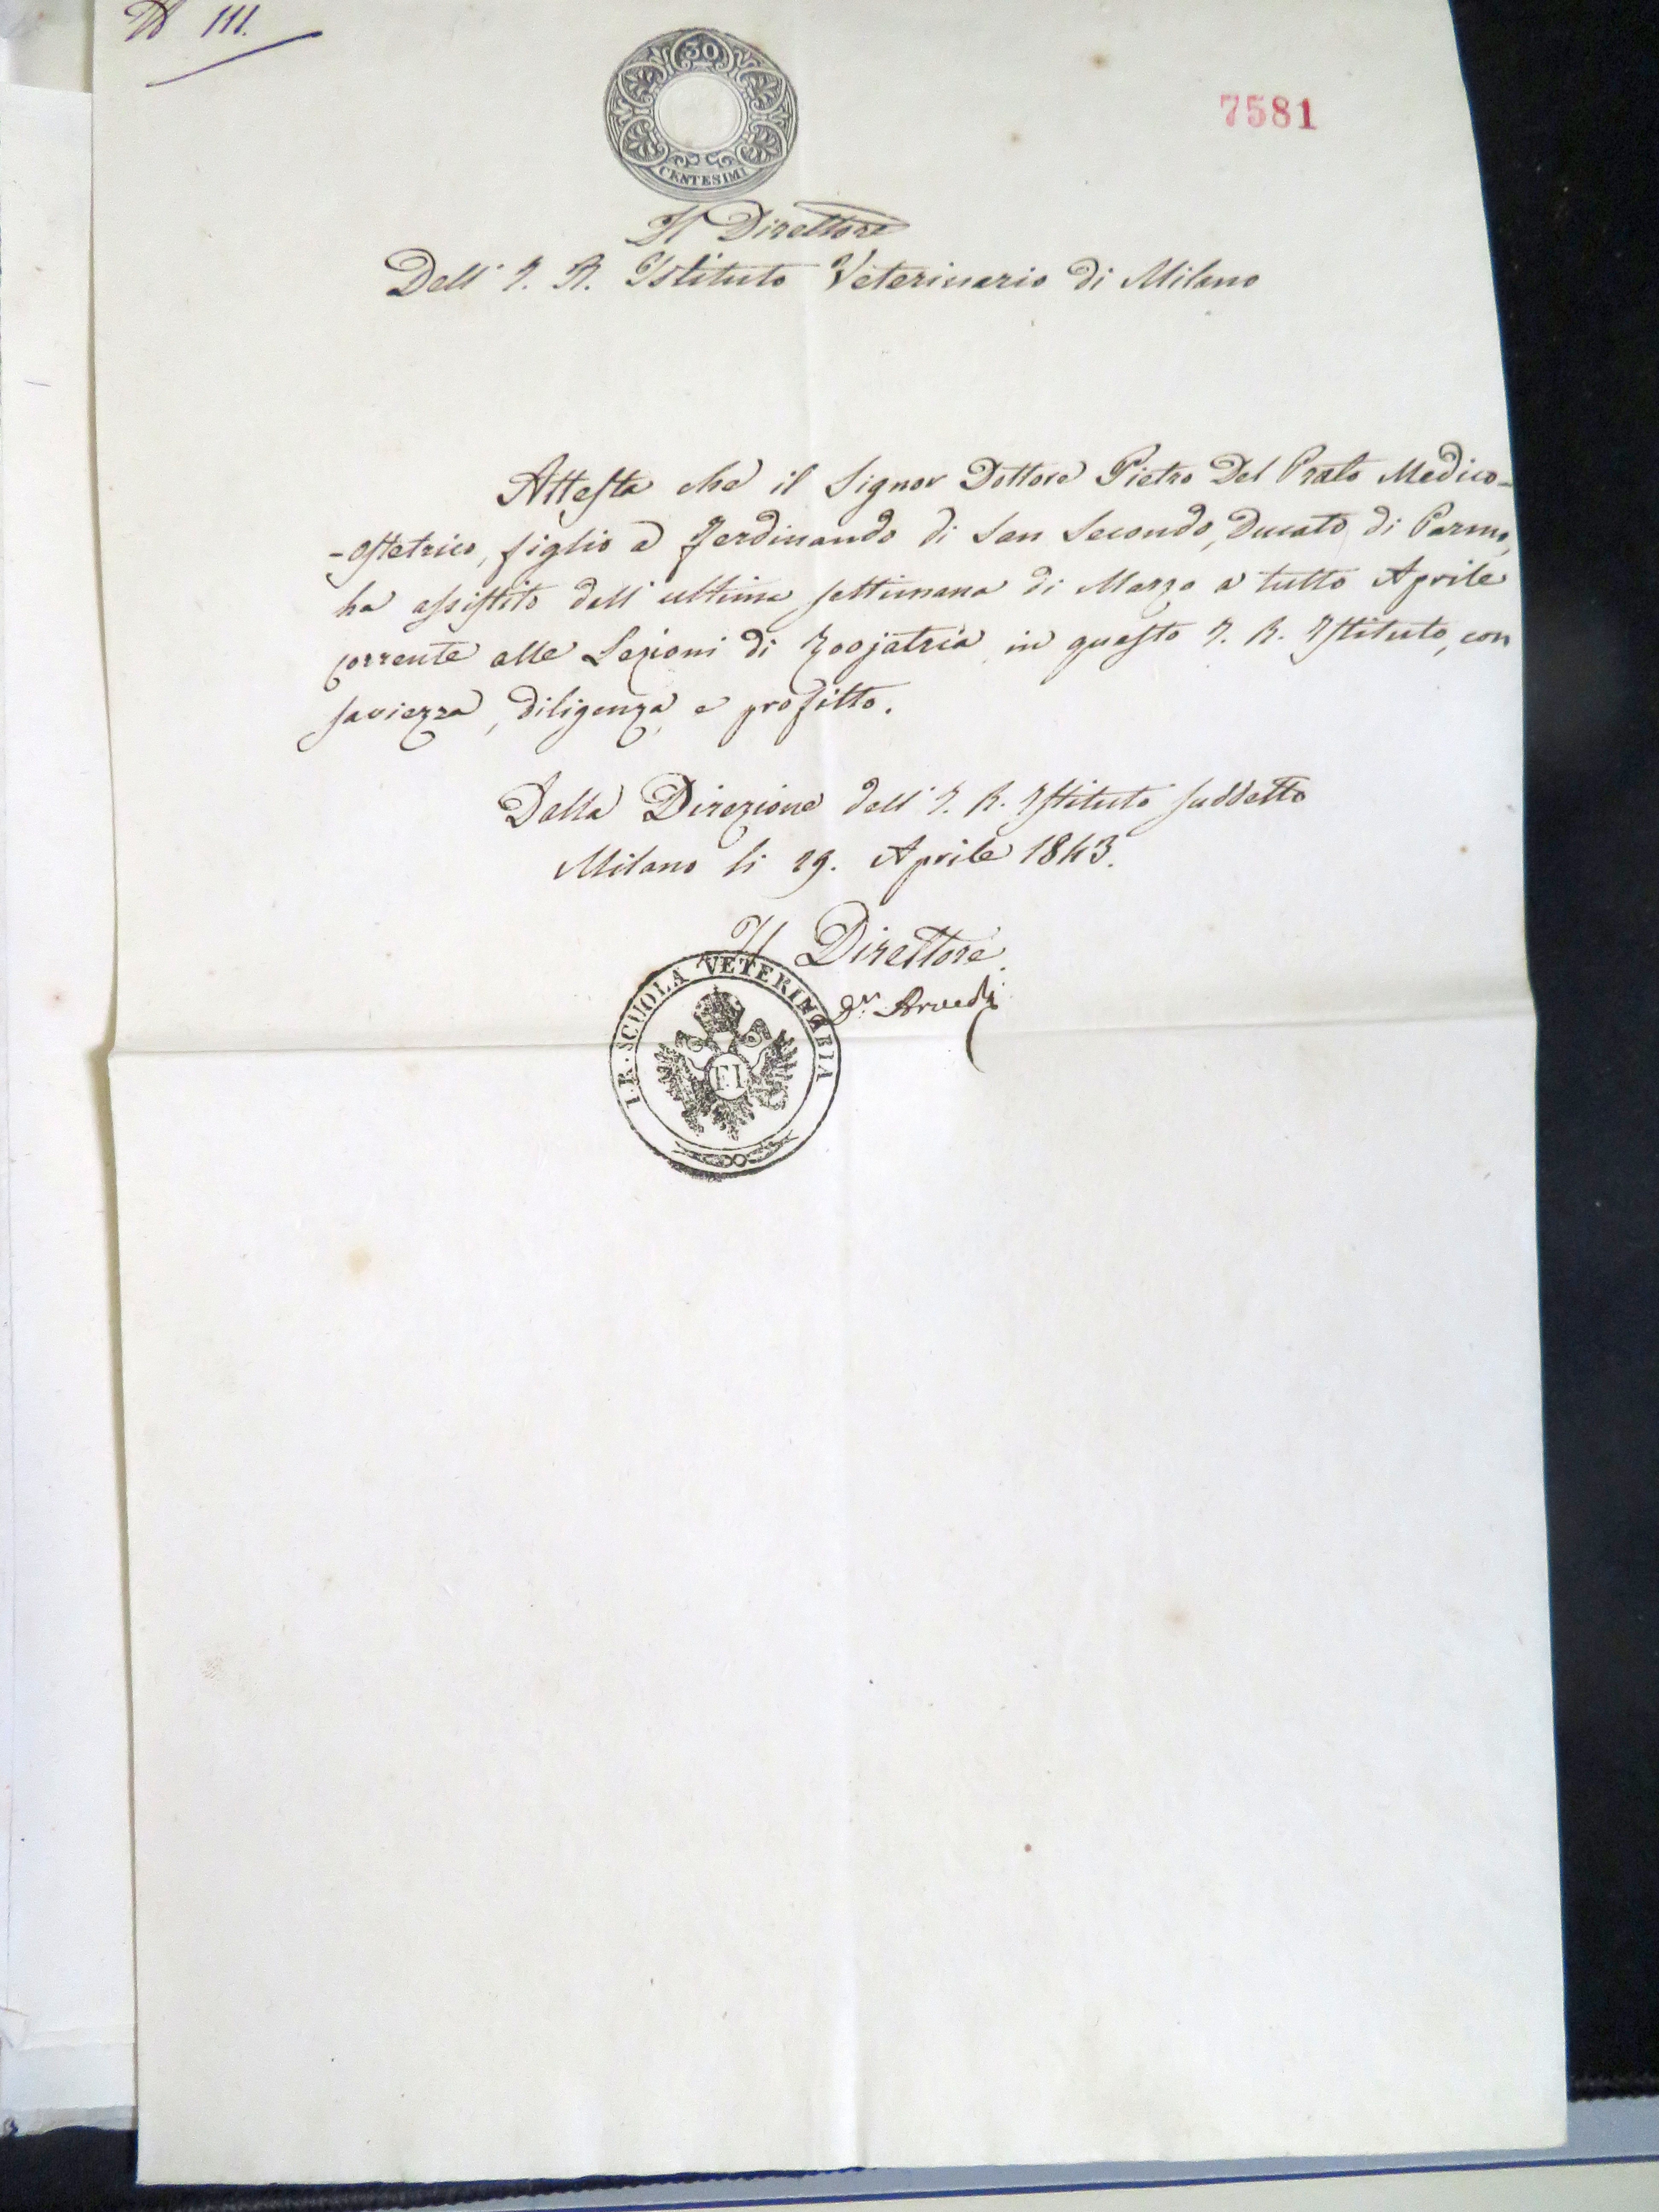 N 111.
30
CENTESIMI
7581
Il Direttore
Dell' I. R. Istituto Veterinario di Milano
Attesta che il Signor Dottore Pietro Del Prato Medico-
-ostetrico, figlio a Ferdinando di San Secondo, Ducato di Parma,
ha assistito dall' ultima settimana di Marzo a tutto Aprile
corrente alle Lezioni di Zoojatria in questo I. R. Istituto, con
saviezza, diligenza, e profitto.
Dalla Direzione dell' I. R. Istituto suddetto
Milano li 29. Aprile 1843.
Il Direttore
Dr. Arvedi
I. R. SCUOLA VETERINARIA
FI